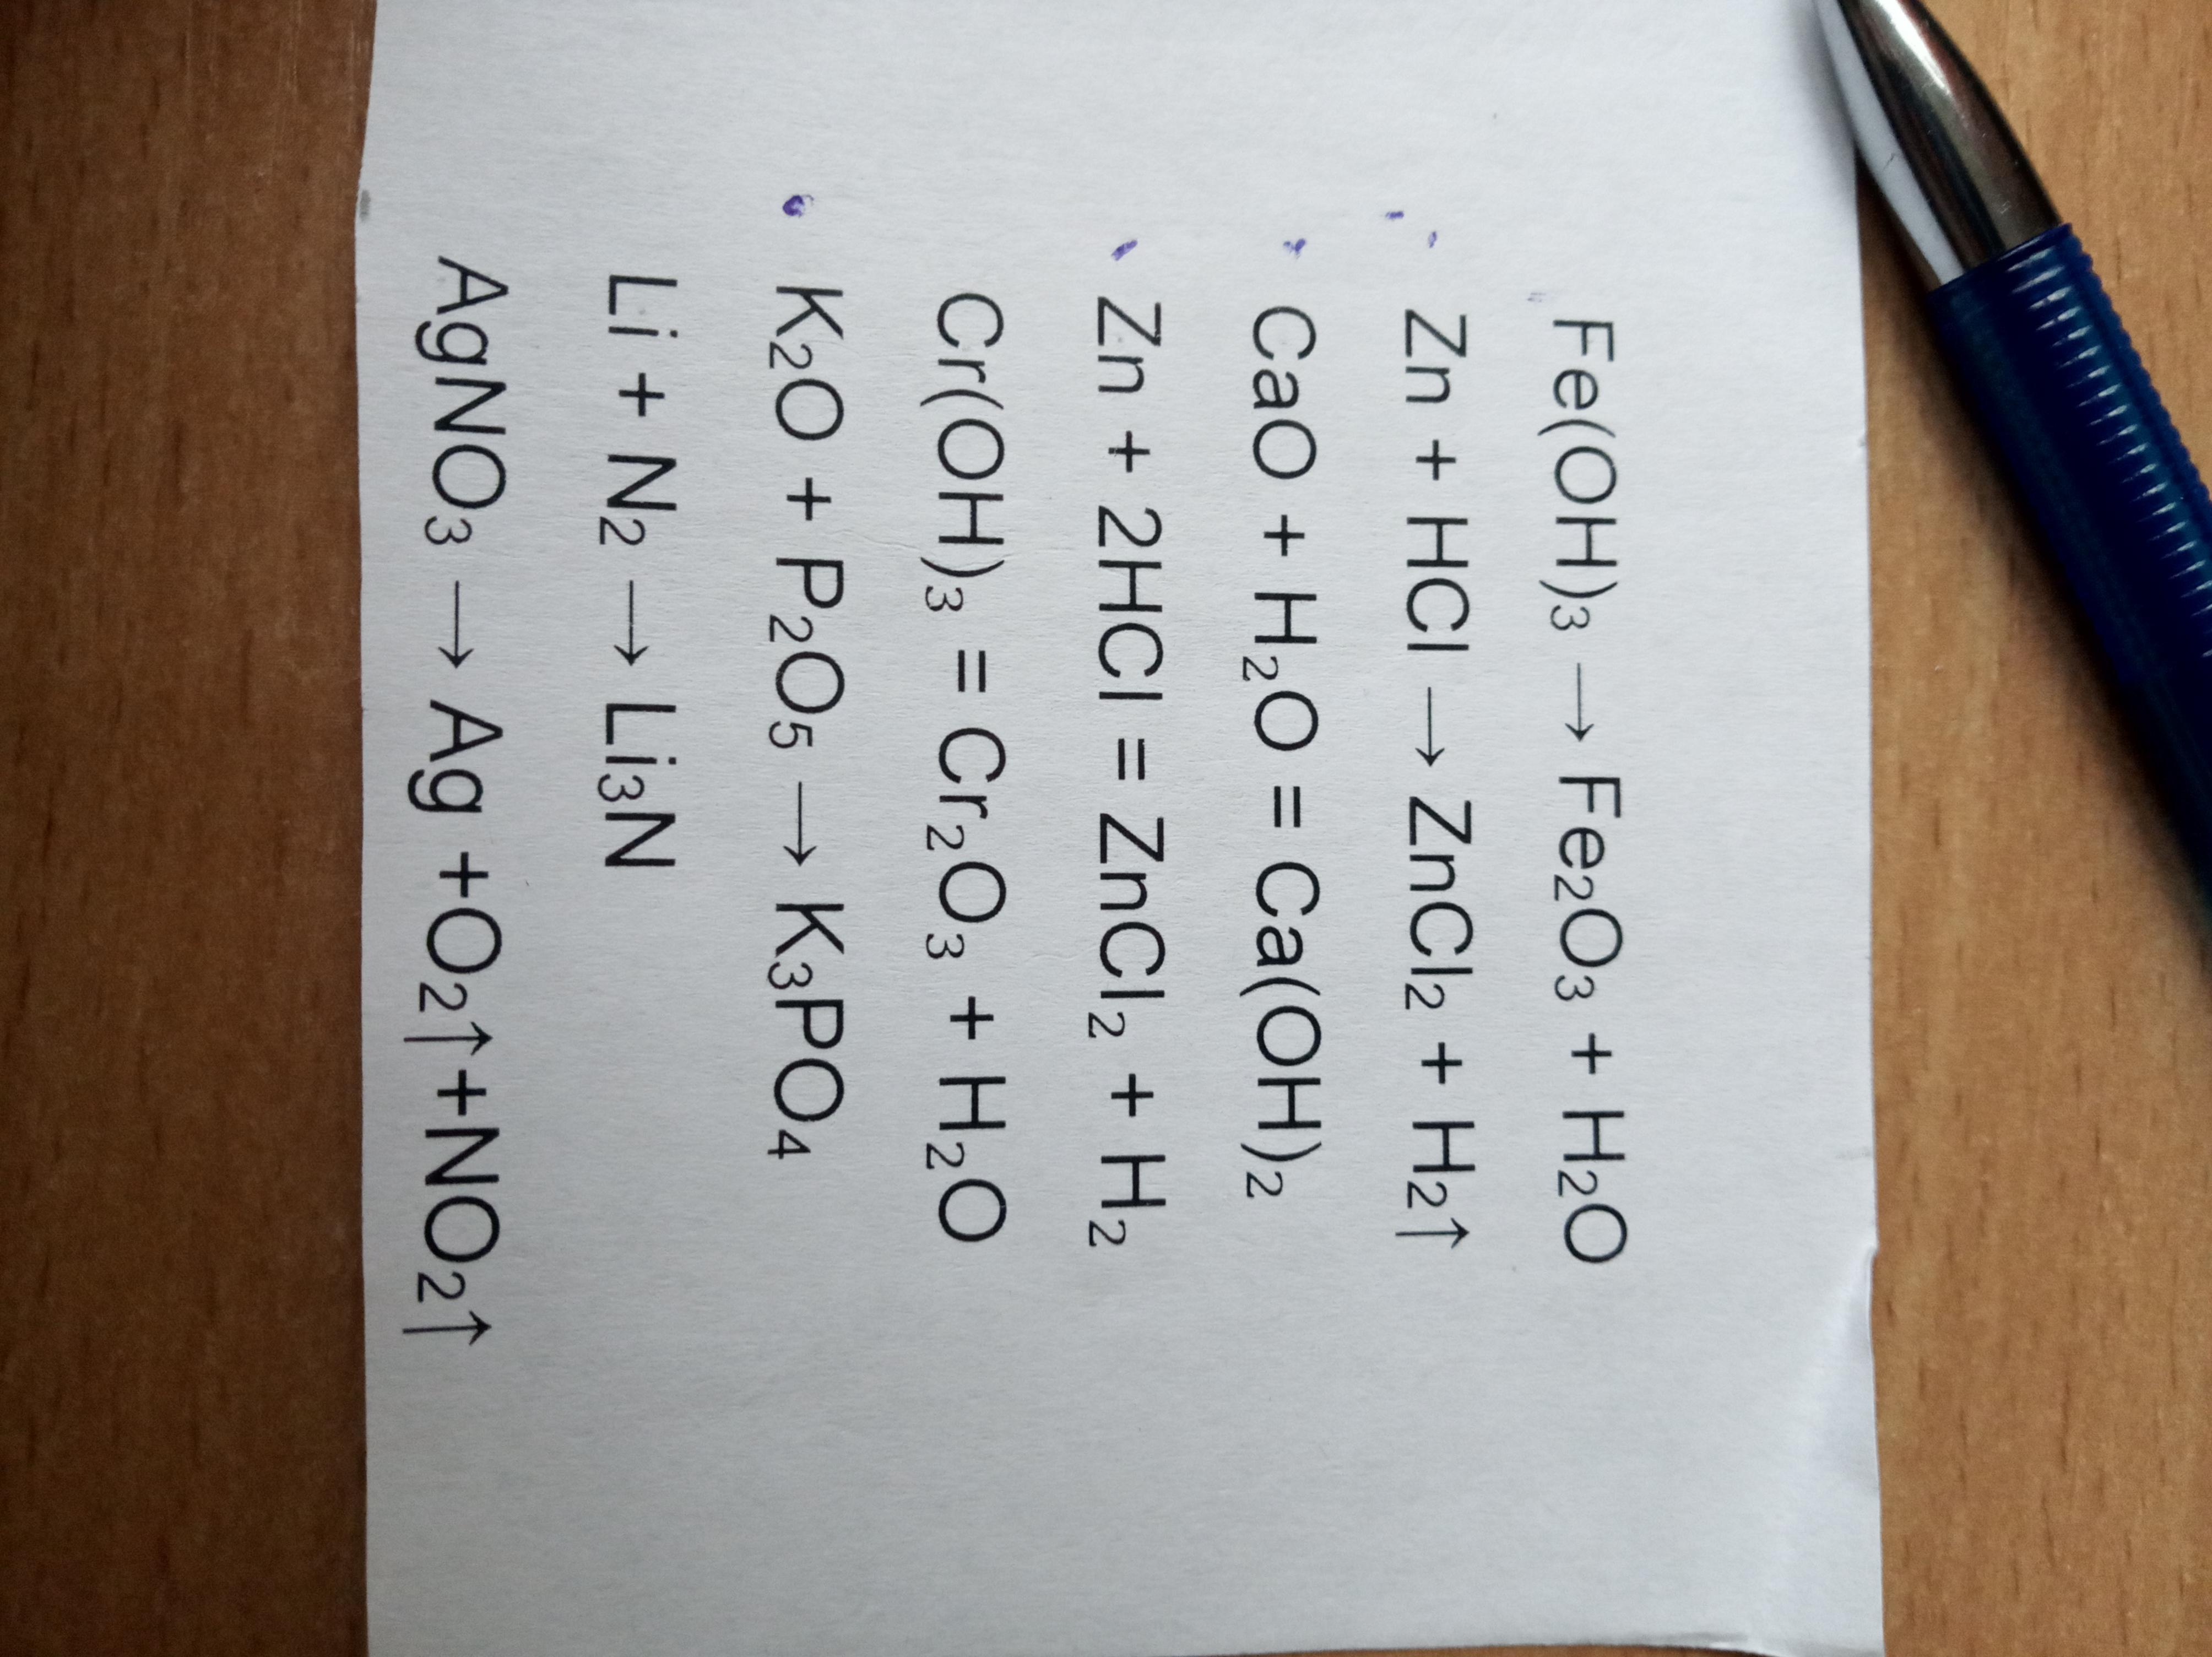 Fe(OH)₃ → Fe₂O₃ + H₂O
Zn + HCl → ZnCl₂ + H₂↑
CaO + H₂O = Ca(OH)₂
Zn + 2HCl = ZnCl₂ + H₂
Cr(OH)₃ = Cr₂O₃ + H₂O
K₂O + P₂O₅ → K₃PO₄
Li + N₂ → Li₃N
AgNO₃ → Ag +O₂↑+NO₂↑